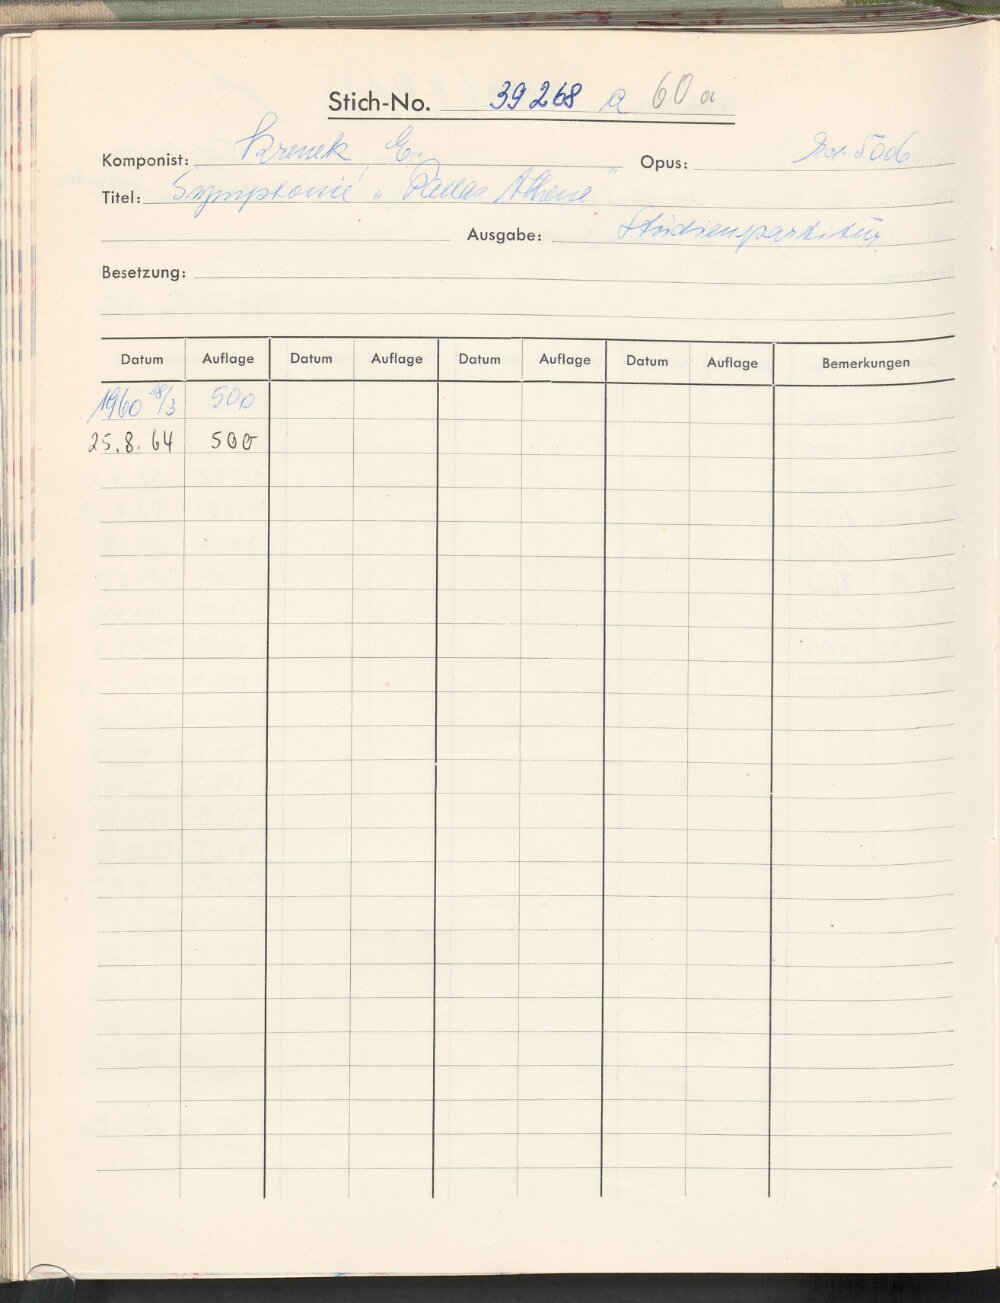 Stich-No. 39268 a 60 a
Komponist: Krenek, E. Opus: Ed. 5006
Titel: Symphonie „Pallas Athene"
Ausgabe: Studienpartitur
Besetzung:
Datum Auflage Datum Auflage Datum Auflage Datum Auflage Bemerkungen
1960 18/3 500
25.8.64 500